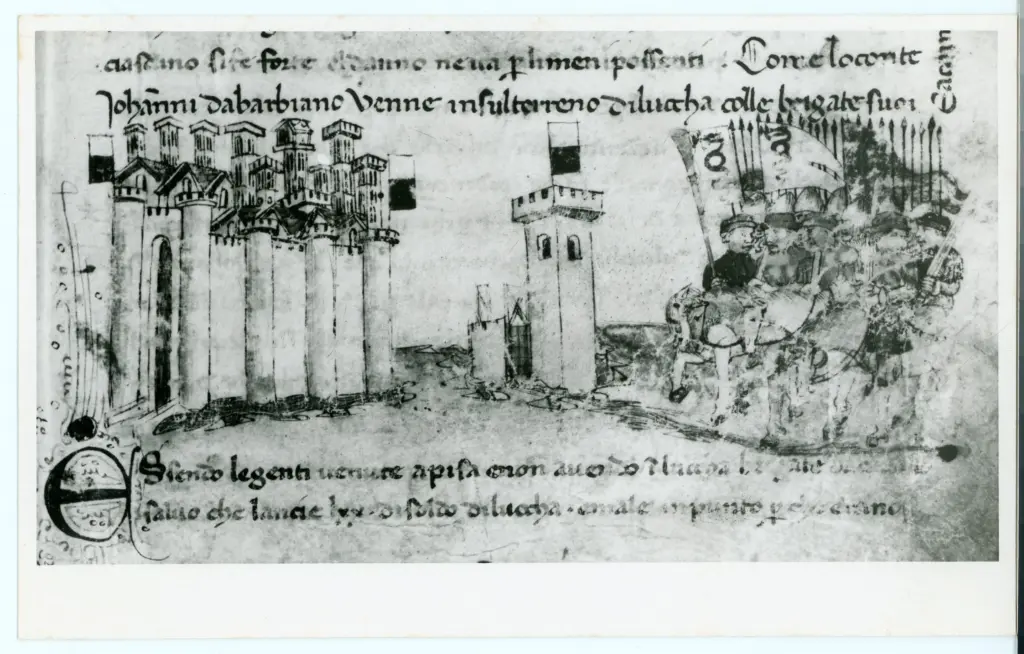 ciascuno si fe forte el danno ne va p li men possenti Come lo conte
Johanni da barbiano venne in sul terreno di luccha colle brigate suoi
Essendo le genti venute a pisa e non avendo
salvo che lancie lxx di soldo di luccha e male in punto p che erano